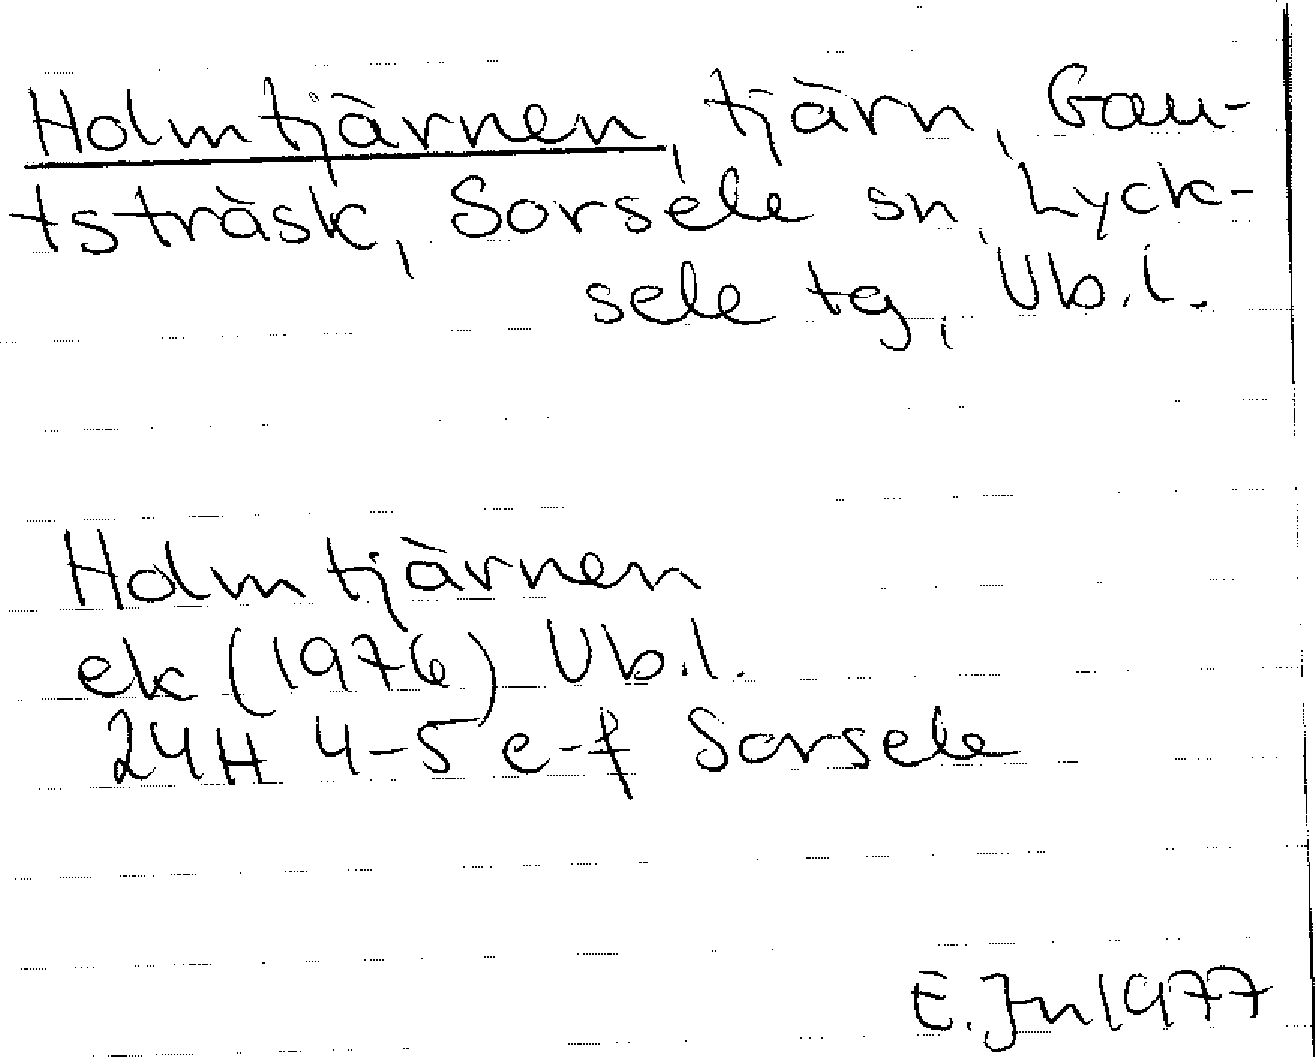 Holmtjärnen, tjärn, Gau-
tsträsk, Sorsele sn, Lyck-
sele tg, Vb.l.
Holmtjärnen
ek (1976) Vb.l.
24H 4-5 e-f Sorsele
E. Jn 1977